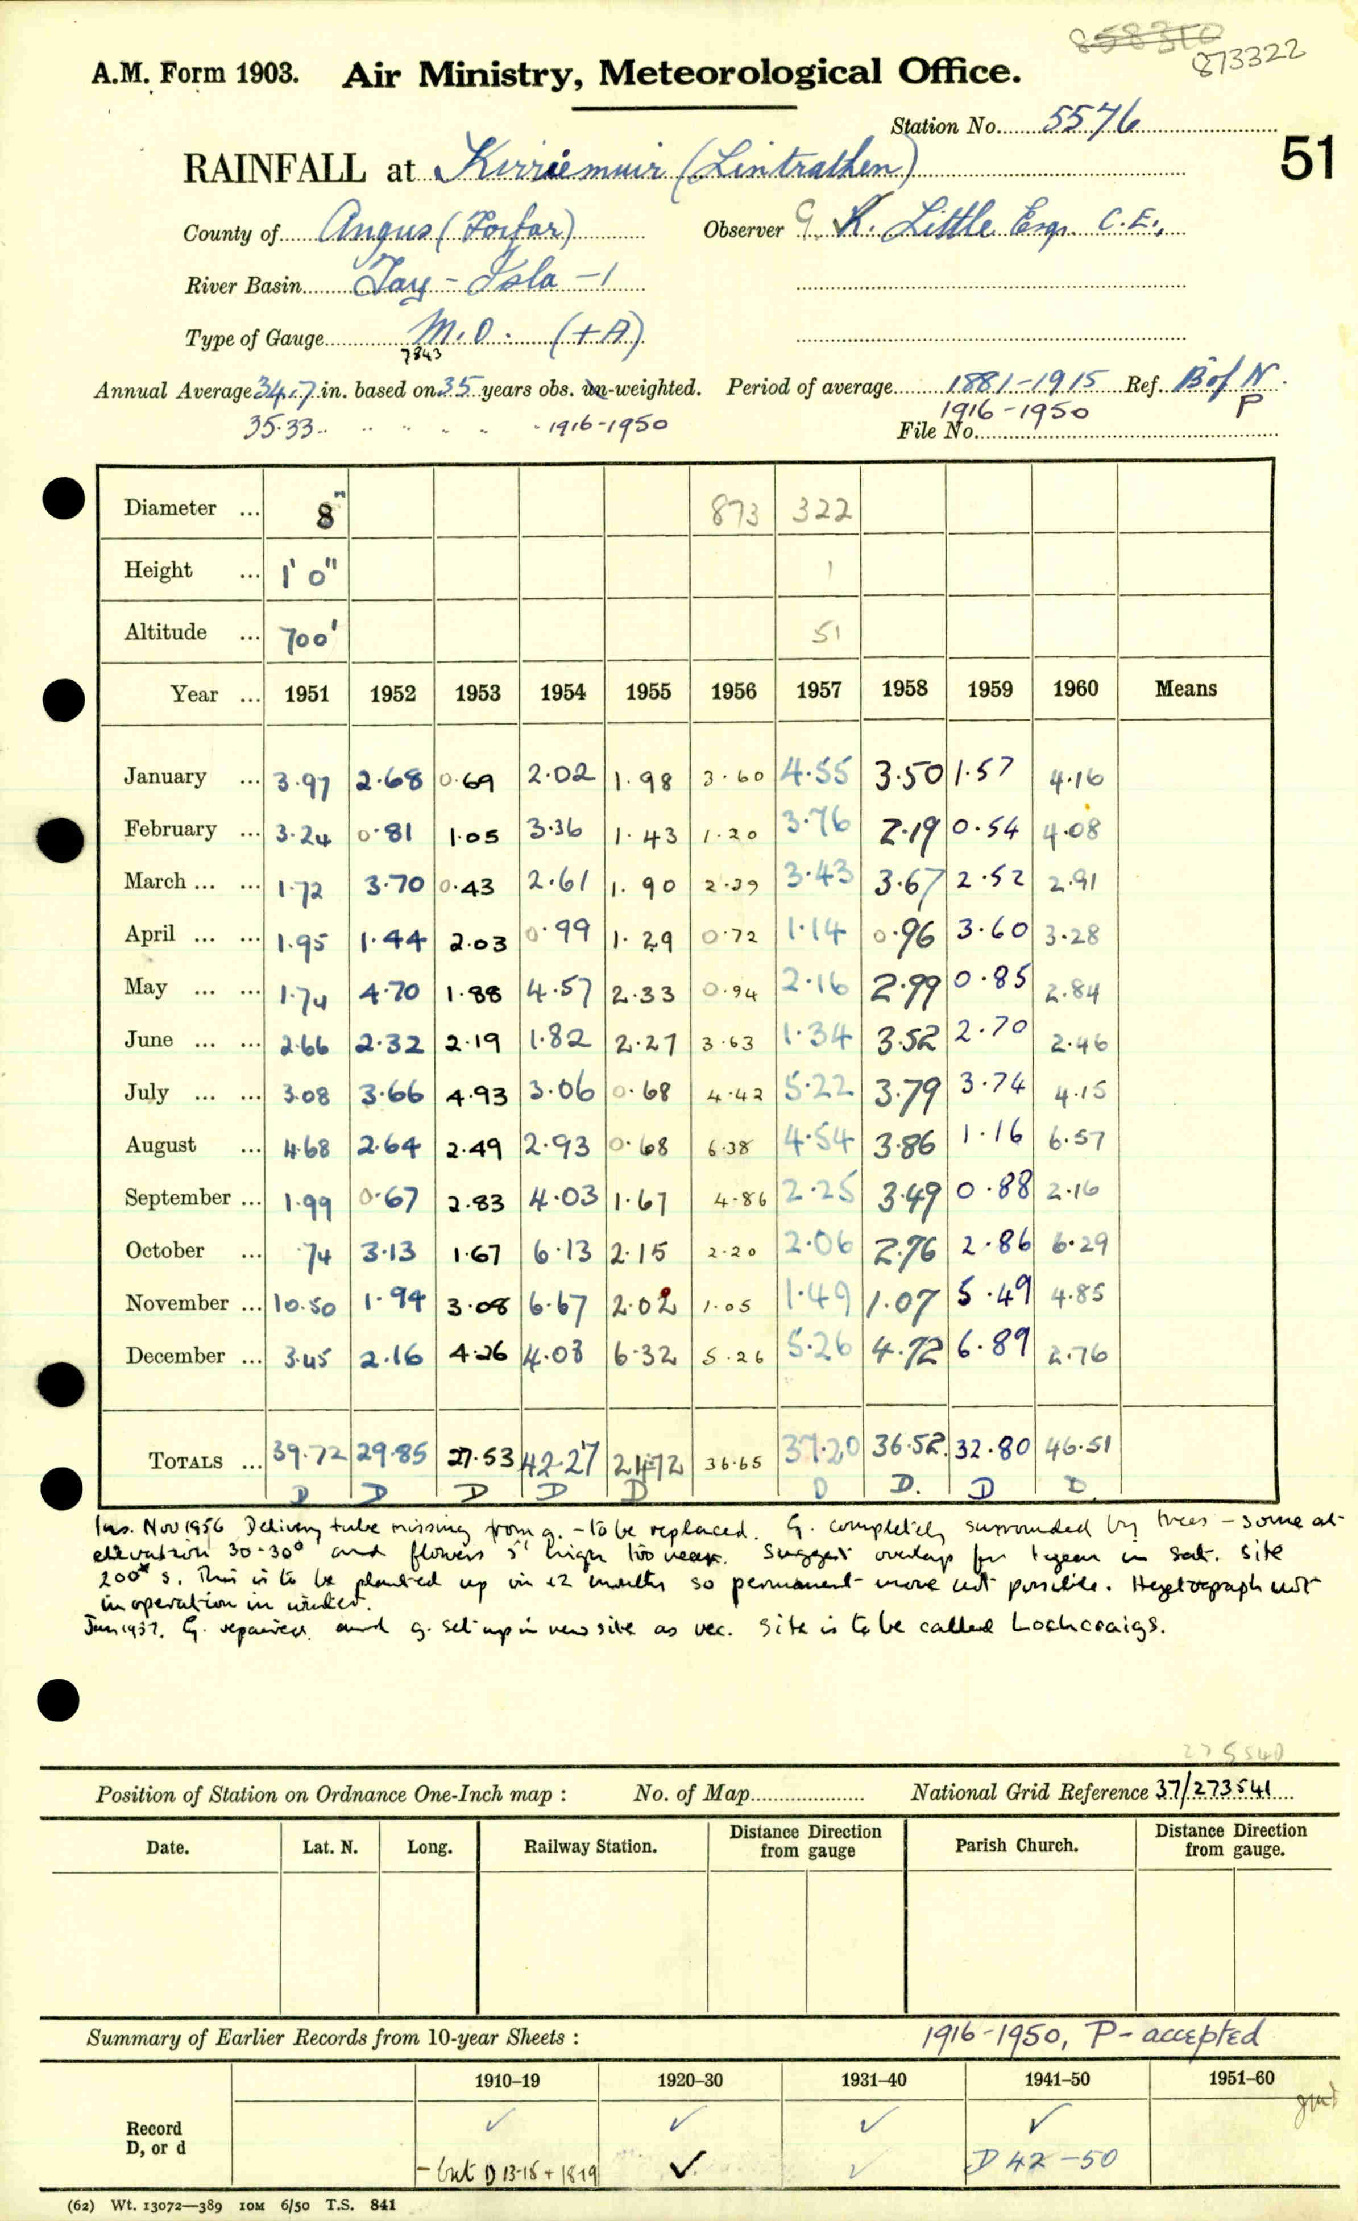 858310
873322
A.M. Form 1903. Air Ministry, Meteorological Office.
Station No. 5576
51
RAINFALL at Kirriemuir (Lintrathen)
County of Angus (Forfar) Observer G. K. Little Esq. C.E.,
River Basin Tay - Isla - 1
Type of Gauge M.O. (+A)
7843
Annual Average 34.7 in. based on 35 years obs. un-weighted. Period of average 1881-1915 Ref. B of N.
35.33 " " " " " 1916-1950 1916-1950 P
File No.
Diameter ... 8" 873 322
Height ... 1' 0" 1
Altitude ... 700' 51
Year ... 1951 1952 1953 1954 1955 1956 1957 1958 1959 1960 Means
January ... 3.97 2.68 0.69 2.02 1.98 3.60 4.55 3.50 1.57 4.16
February ... 3.24 0.81 1.05 3.36 1.43 1.20 3.76 2.19 0.54 4.08
March ... ... 1.72 3.70 0.43 2.61 1.90 2.39 3.43 3.67 2.52 2.91
April ... ... 1.95 1.44 2.03 0.99 1.29 0.72 1.14 0.96 3.60 3.28
May ... ... 1.74 4.70 1.88 4.57 2.33 0.94 2.16 2.99 0.85 2.84
June ... ... 2.66 2.32 2.19 1.82 2.27 3.63 1.34 3.52 2.70 2.46
July ... ... 3.08 3.66 4.93 3.06 0.68 4.42 5.22 3.79 3.74 4.15
August ... 4.68 2.64 2.49 2.93 0.68 6.38 4.54 3.86 1.16 6.57
September ... 1.99 0.67 2.83 4.03 1.67 4.86 2.25 3.49 0.88 2.16
October ... .74 3.13 1.67 6.13 2.15 2.20 2.06 2.76 2.86 6.29
November ... 10.50 1.94 3.08 6.67 2.02 1.05 1.49 1.07 5.49 4.85
December ... 3.45 2.16 4.26 4.08 6.32 5.26 5.26 4.72 6.89 2.76
TOTALS ... 39.72 29.85 27.53 42.27 24.72 36.65 37.20 36.52 32.80 46.51
D D D D D D D. D D.
Ins. Nov 1956 Delivery tube missing from g. - to be replaced. G. completely surrounded by trees - some at
elevation 30-30° and flowers 5' high too near. Suggest overlap for 1 year in sat. site
200x S. This is to be planted up in 12 months so permanent move not possible. Hyetograph not
in operation in winter.
Jan 1957. G. repaired and g. set up in new site as rec. Site is to be called Lochcraigs.
275540
Position of Station on Ordnance One-Inch map : No. of Map National Grid Reference 37/273541
Date. Lat. N. Long. Railway Station. Distance Direction from gauge Parish Church. Distance Direction from gauge.
Summary of Earlier Records from 10-year Sheets : 1916-1950, P - accepted
1910–19 1920–30 1931–40 1941–50 1951–60
Record ✓ ✓ ✓ ✓
D, or d - but D 13-15 + 18-19 ✓ ✓ D 42-50
(62) Wt. 13072—389 10M 6/50 T.S. 841